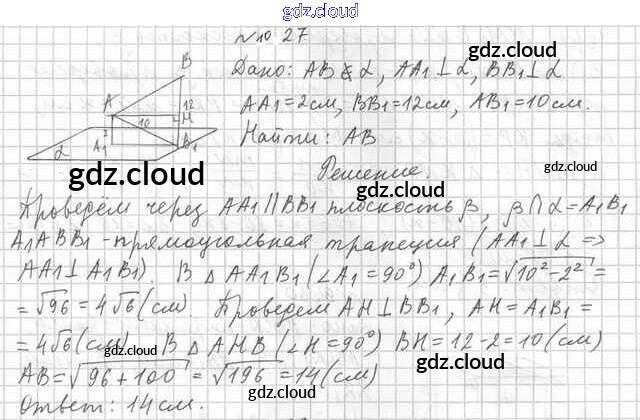 gdz.cloud
№10.27
gdz.cloud
Дано: AB ⊄ α, AA1 ⊥ α, BB1 ⊥ α
AA1 = 2см, BB1 = 12см, AB1 = 10см.
Найти: AB
B
A
12
10
H
2
A1
B1
α
gdz.cloud
Решение.
gdz.cloud
Проведём через AA1 || BB1 плоскость β, β ∩ α = A1B1
A1ABB1 - прямоугольная трапеция (AA1 ⊥ α =>
gdz.cloud
AA1 ⊥ A1B1). В △ AA1B1 (∠A1 = 90°) A1B1 = √10²-2² =
= √96 = 4√6 (см). Проведем AH ⊥ BB1, AH = A1B1 =
= 4√6 (см) В △ AHB (∠H = 90°) BH = 12-2 = 10 (см)
gdz.cloud
gdz.cloud
AB = √96+100 = √196 = 14 (см)
gdz.cloud
Ответ: 14 см.